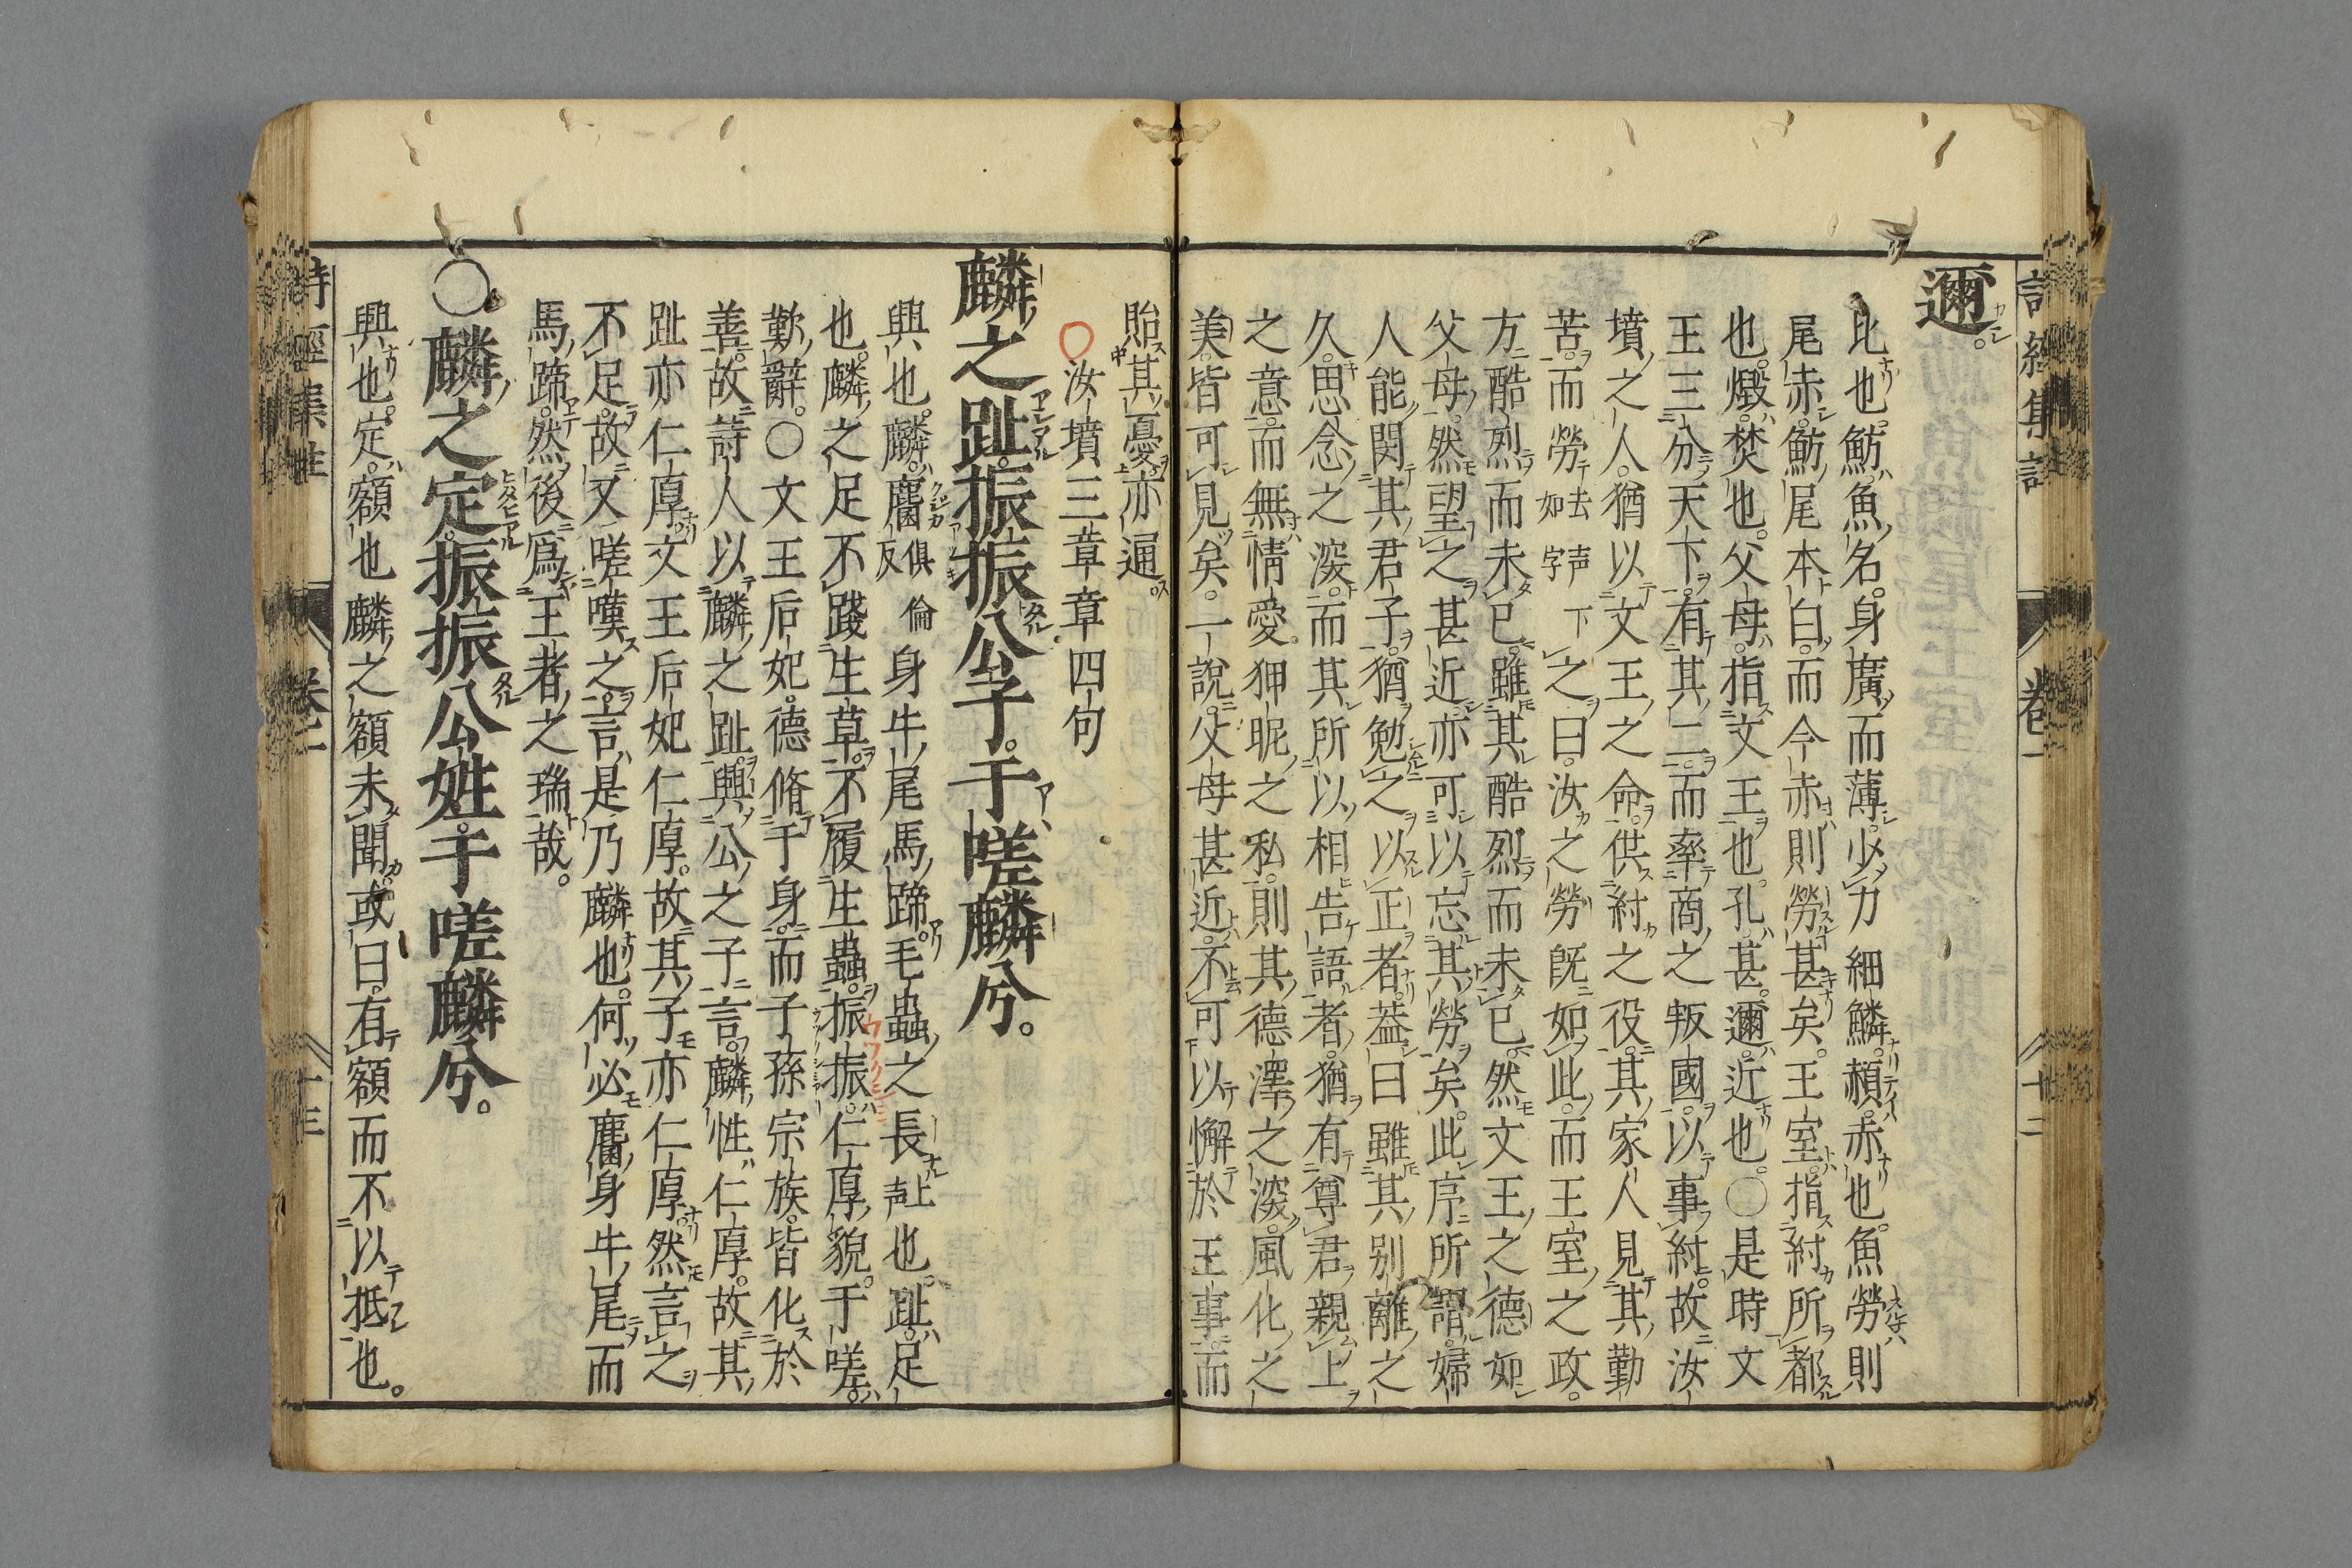 邇。
比也。魴魚名。身廣而薄。少力細鱗。頳。赤也。魚勞則
尾赤。魴尾本白。而今赤則勞甚矣。王室。指紂所都
也。燬。焚也。父母。指文王也。孔。甚。邇。近也。〇是時文
王三分天下。有其二。而率商之叛國。以事紂。故汝
墳之人。猶以文王之命。供紂之役。其家人見其勤
苦。而勞去声如字下之曰。汝之勞既如此。而王室之政。
方酷烈而未已。雖其酷烈而未已。然文王之德如
父母。然望之甚近。亦可以忘其勞矣。此序所謂。婦
人能閔其君子。猶勉之以正者。蓋曰雖其別離之
久。思念之深。而其所以相告語者。猶有尊君親上
之意。而無情愛狎昵之私。則其德澤之深。風化之
美。皆可見矣。一說。父母甚近。不可以懈於王事。而
貽其憂。亦通。
〇汝墳三章章四句
麟之趾。振振公子。于嗟麟兮。
興也。麟。麕俱倫反身牛尾馬蹄。毛蟲之長上声也。趾。足
也。麟之足不踐生草。不履生蟲。振振。仁厚貌。于嗟。
歎辭。〇文王后妃。德脩于身。而子孫宗族。皆化於
善。故詩人以麟之趾。興公之子。言麟性仁厚。故其
趾亦仁厚。文王后妃仁厚。故其子亦仁厚。然言之
不足。故又嗟嘆之。言是乃麟也。何必麕身牛尾而
馬蹄。然後爲王者之瑞哉。
〇麟之定。振振公姓。于嗟麟兮。
興也。定。額也麟之額未聞。或曰。有額而不以抵也。
詩經集註
卷一
十二
詩經集註
卷一
十三